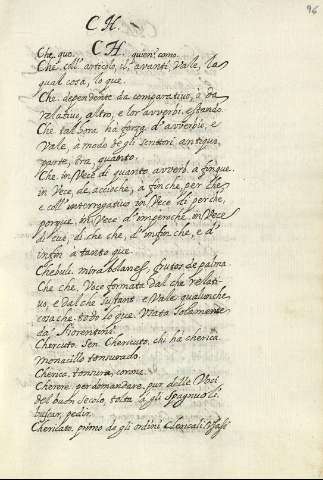 96
C H.
C H.
Che. que. quien. como.
Che coll' articolo, avanti, Vale, la
qual cosa, lo que.
Che. dependente da comparativo, o da
relativo, altro, e lor avverbi. estando.
Che tal hora ha forza d' avverbio, e
Vale, a modo de gli scrittori antiqui,
parte, ora, quanto.
Che. in Vece di quanto avverb. a finque.
in Vece de, accioche, a fin che, per che
e coll' interrogativo in Vece di perche,
porque, in Vece d' imperoche, in Vece
di cui, di che che, d' infin che, e d'
infin a tanto que.
Chebuli. mirabolanes, frutos de palma
Che che, Voce formata dal che relati-
vo, e dal che sustant. e Vale qualunche
cosa che. todo lo que. Usata solamente
da' Fiorentini.
Chercuto. Sen. Chericuto. chi ha cherica.
monacillo tonsurado.
Cherica. tonsura, corona.
Cherere. per domandare. pur delle Voci
del buon secolo, tolta da gli Spagnuoli.
buscar, pedir.
Chericato. primo de gli ordini Clericali.